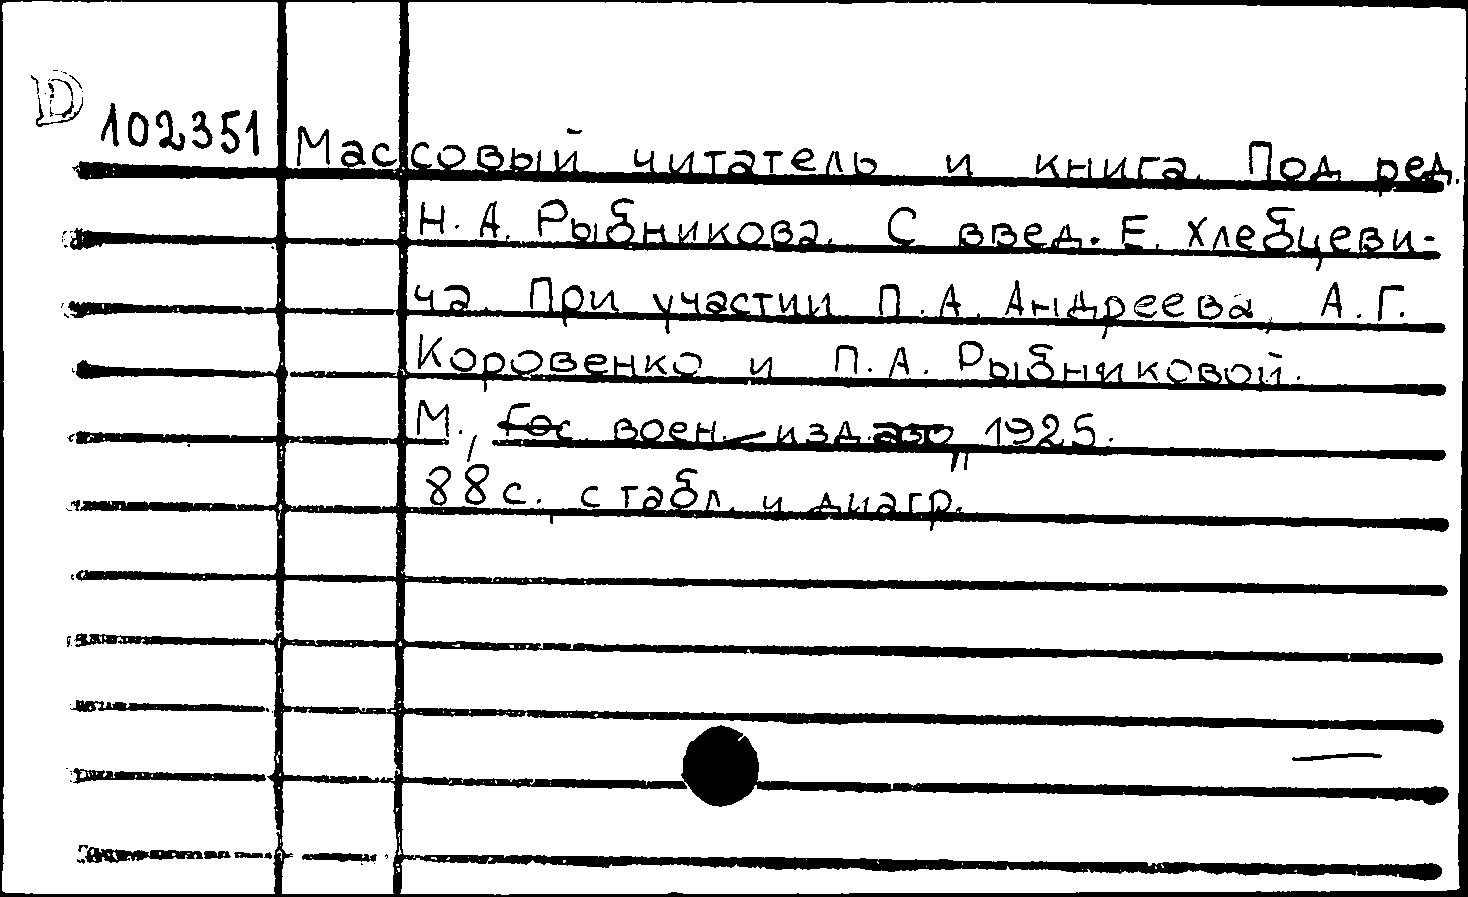 D 102351 Массовый читатель и книга. Под ред.
Н. А. Рыбникова. С введ. Е. Хлебцеви-
ча. При участии П. А. Андреева, А. Г.
Коровенко и П. А. Рыбниковой.
М., Гос воен. изд 1925.
88 с., с табл. и диагр.